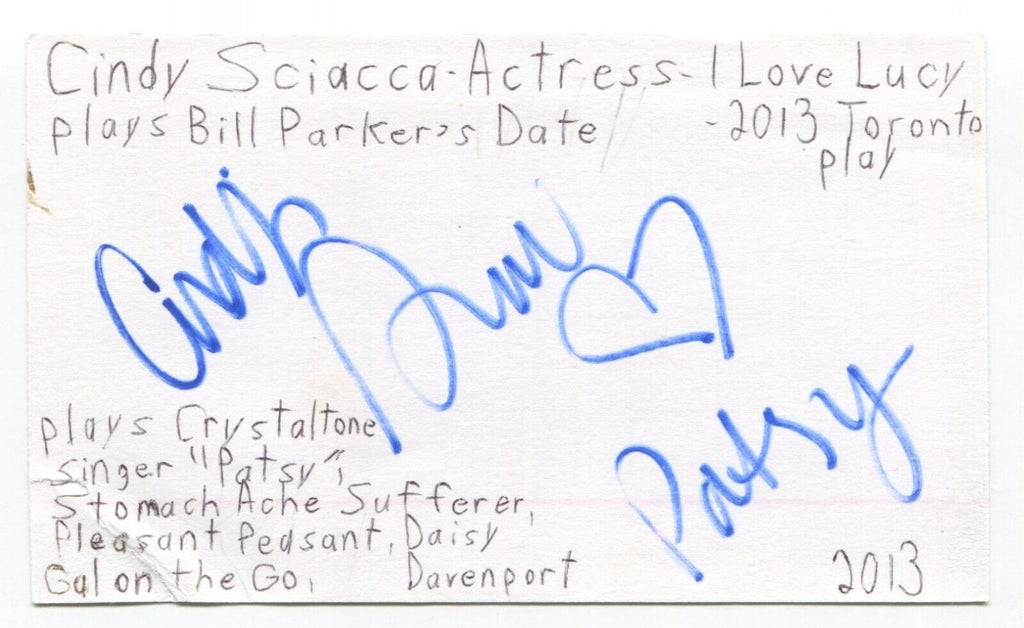 Cindy Sciacca - Actress - I Love Lucy
plays Bill Parker's Date - 2013 Toronto
play
Cindy
Patsy
plays Crystaltone
singer "Patsy",
Stomach Ache Sufferer,
Pleasant Peasant, Daisy
Gal on the Go, Davenport
2013